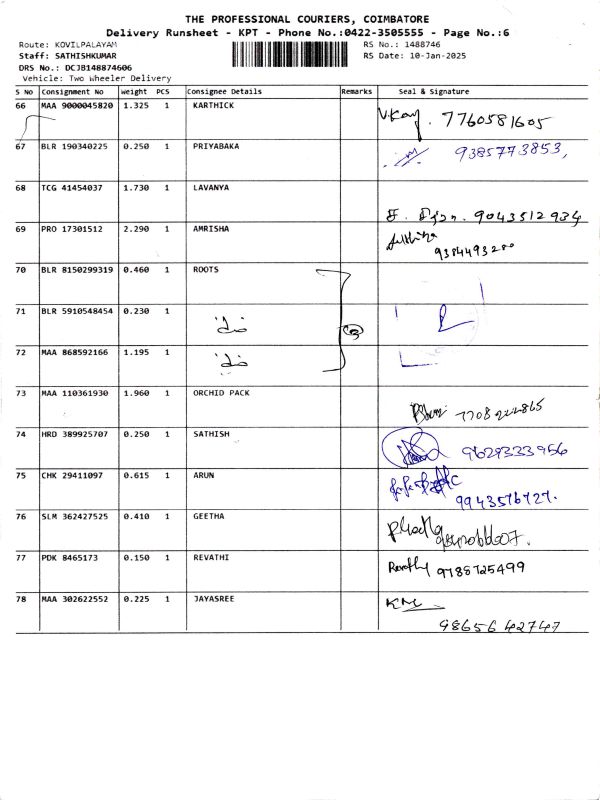 THE PROFESSIONAL COURIERS, COIMBATORE
Delivery Runsheet - KPT - Phone No.:0422-3505555 - Page No.:6
Route: KOVILPALAYAM RS No.: 1488746
Staff: SATHISHKUMAR RS Date: 10-Jan-2025
DRS No.: DCJB148874606
Vehicle: Two Wheeler Delivery
S No Consignment No Weight PCS Consignee Details Remarks Seal & Signature
66 MAA 9000045820 1.325 1 KARTHICK
7760581605
67 BLR 190340225 0.250 1 PRIYABAKA 9385773853,
68 TCG 41454037 1.730 1 LAVANYA
9043512934
69 PRO 17301512 2.290 1 AMRISHA
70 BLR 8150299319 0.460 1 ROOTS
71 BLR 5910548454 0.230 1
72 MAA 868592166 1.195 1
73 MAA 110361930 1.960 1 ORCHID PACK
74 HRD 389925707 0.250 1 SATHISH
9629333956
75 CHK 29411097 0.615 1 ARUN
9943576727.
76 SLM 362427525 0.410 1 GEETHA
77 PDK 8465173 0.150 1 REVATHI
Revathy 9788725499
78 MAA 302622552 0.225 1 JAYASREE
98656 42747